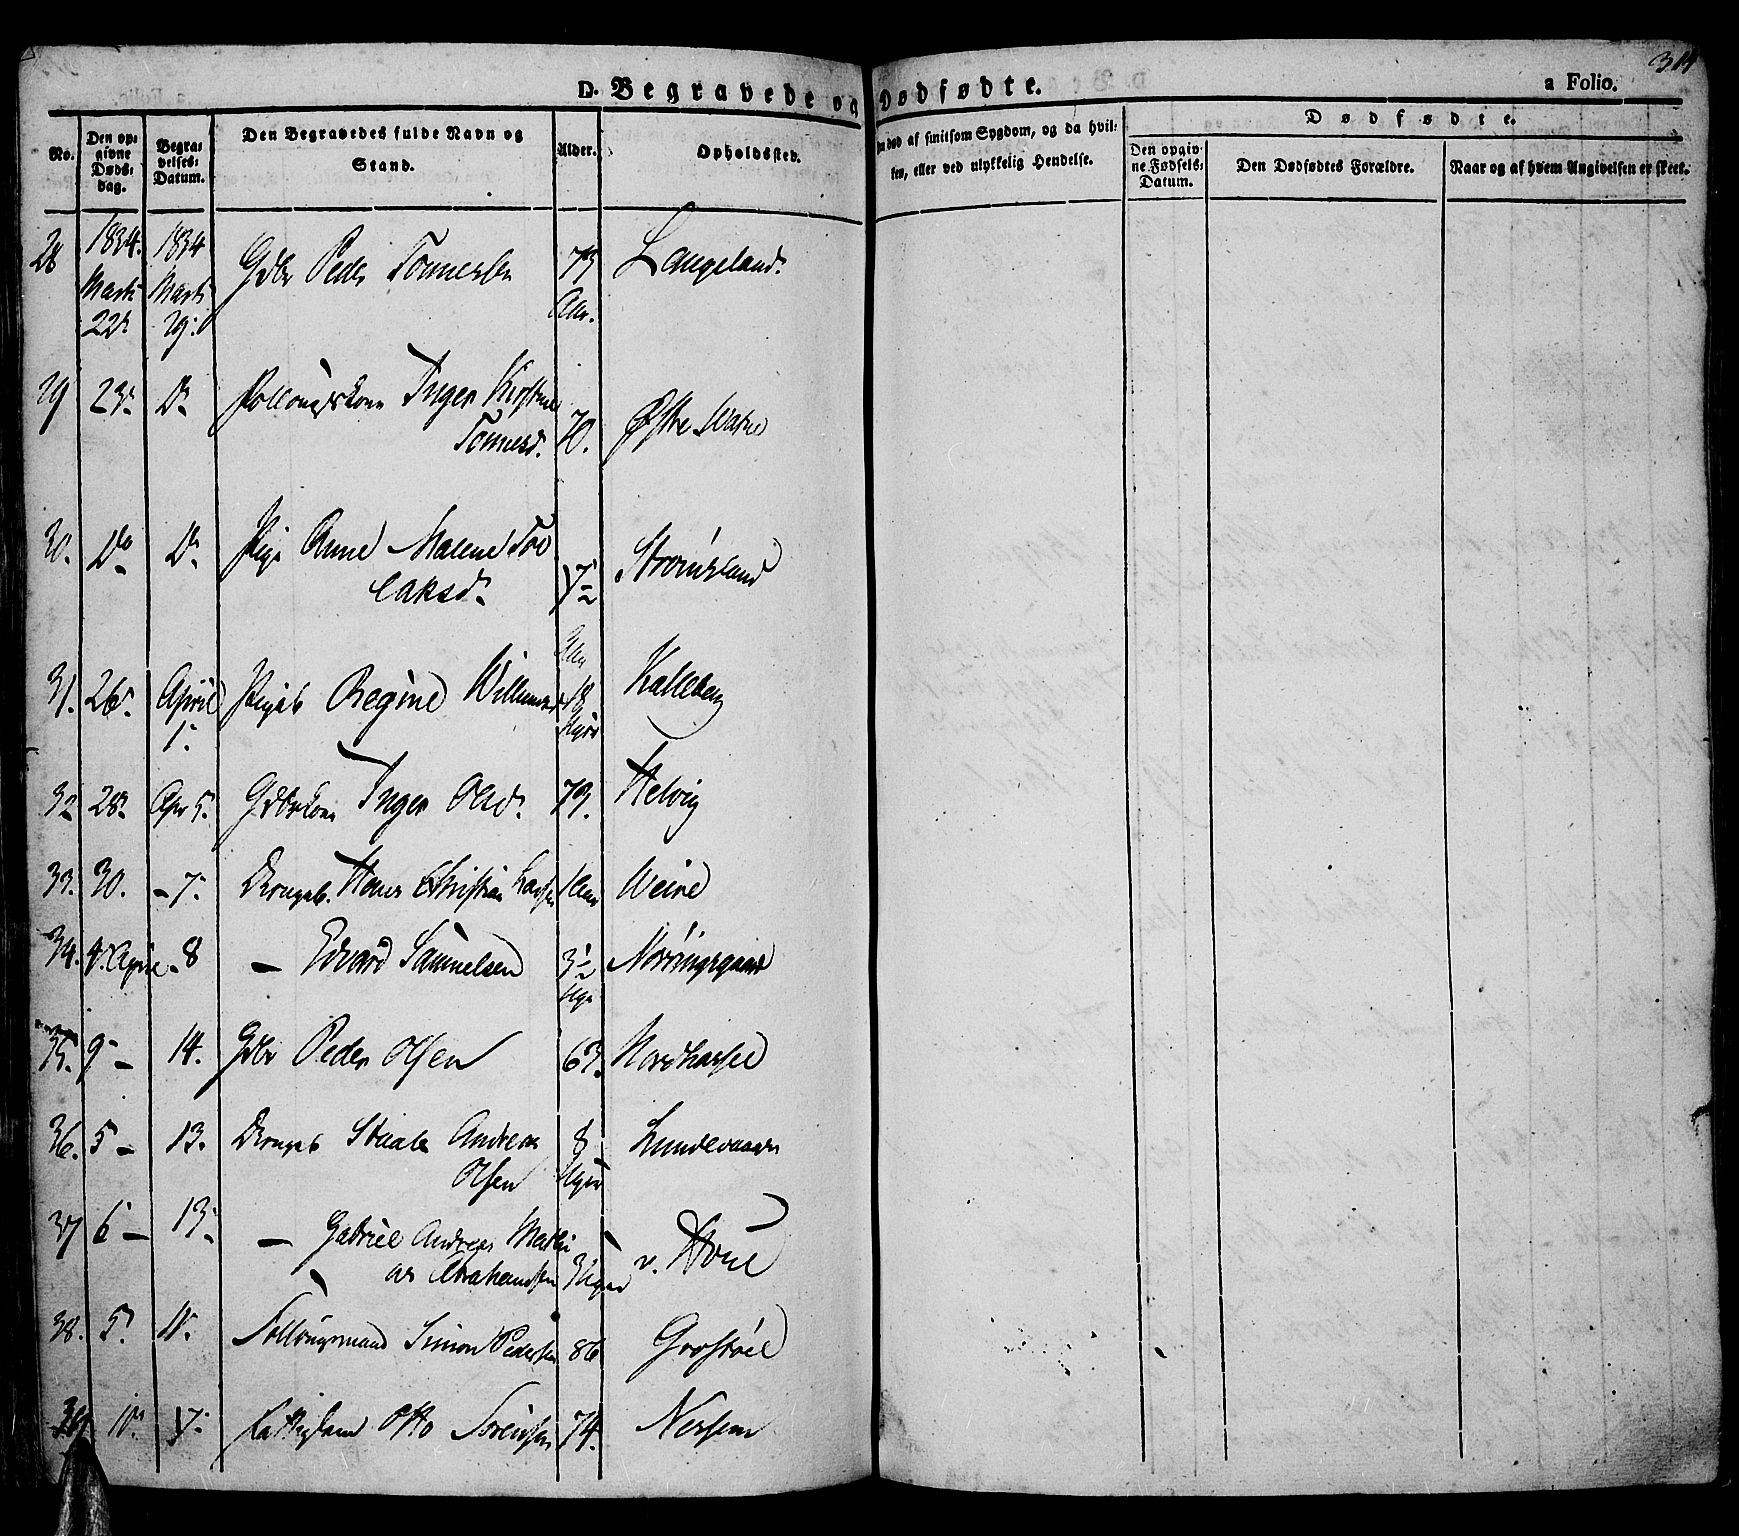 314
D. Begravede og Dødfødte.
a Folio.
No.
Den opgivne Døds-dag.
Begravelses-Datum.
Den Begravedes fulde Navn og Stand.
Alder.
Opholdssted.
død af smitsom Sygdom, og da hvilken, eller ved ulykkelig Hendelse.
Dødfødte.
Den opgivne Fødsels-Datum.
Den Dødfødtes Forældre.
Naar og af hvem Angivelsen er skeet.
28 1834. Marts 22de 1834 Marts 29. Gdbr Peder Tønnesen 73 Aar. Langeland.
29 23. Do Follougskone Inger Kirstine
Tønnesd. 70. Østre
30. Do Do Pige Anne Malene Tol
laksd. Strømsland
31. 26. April 1. Pigeb Regine Willumsd 18 Uger Kalleberg
32 28. Apr 5. Gdbrkone Inger Olsd. 73. Helvig
33. 30. - 7. Drengeb. Hans Christian Larsen 1 Aar Weire
34. 4. April - 8 - Edvard Samuelsen 3½ Uge
35. 9 - 14. Gdbr Peder Olsen 63. Nordhassel
36. 5 - 13. Drengeb Staale Andreas
Olsen 8 Uger Lundevaagen
37 6 - 13. - Gabriel Andreas Mathi
as Abrahamsen 3 Uger v. Houe
38. 5. 11. Follougsmand Simon Pedersen 86 Grostøel
39 11. 17. Fattiglem Otto Sørensen 74. Nersem